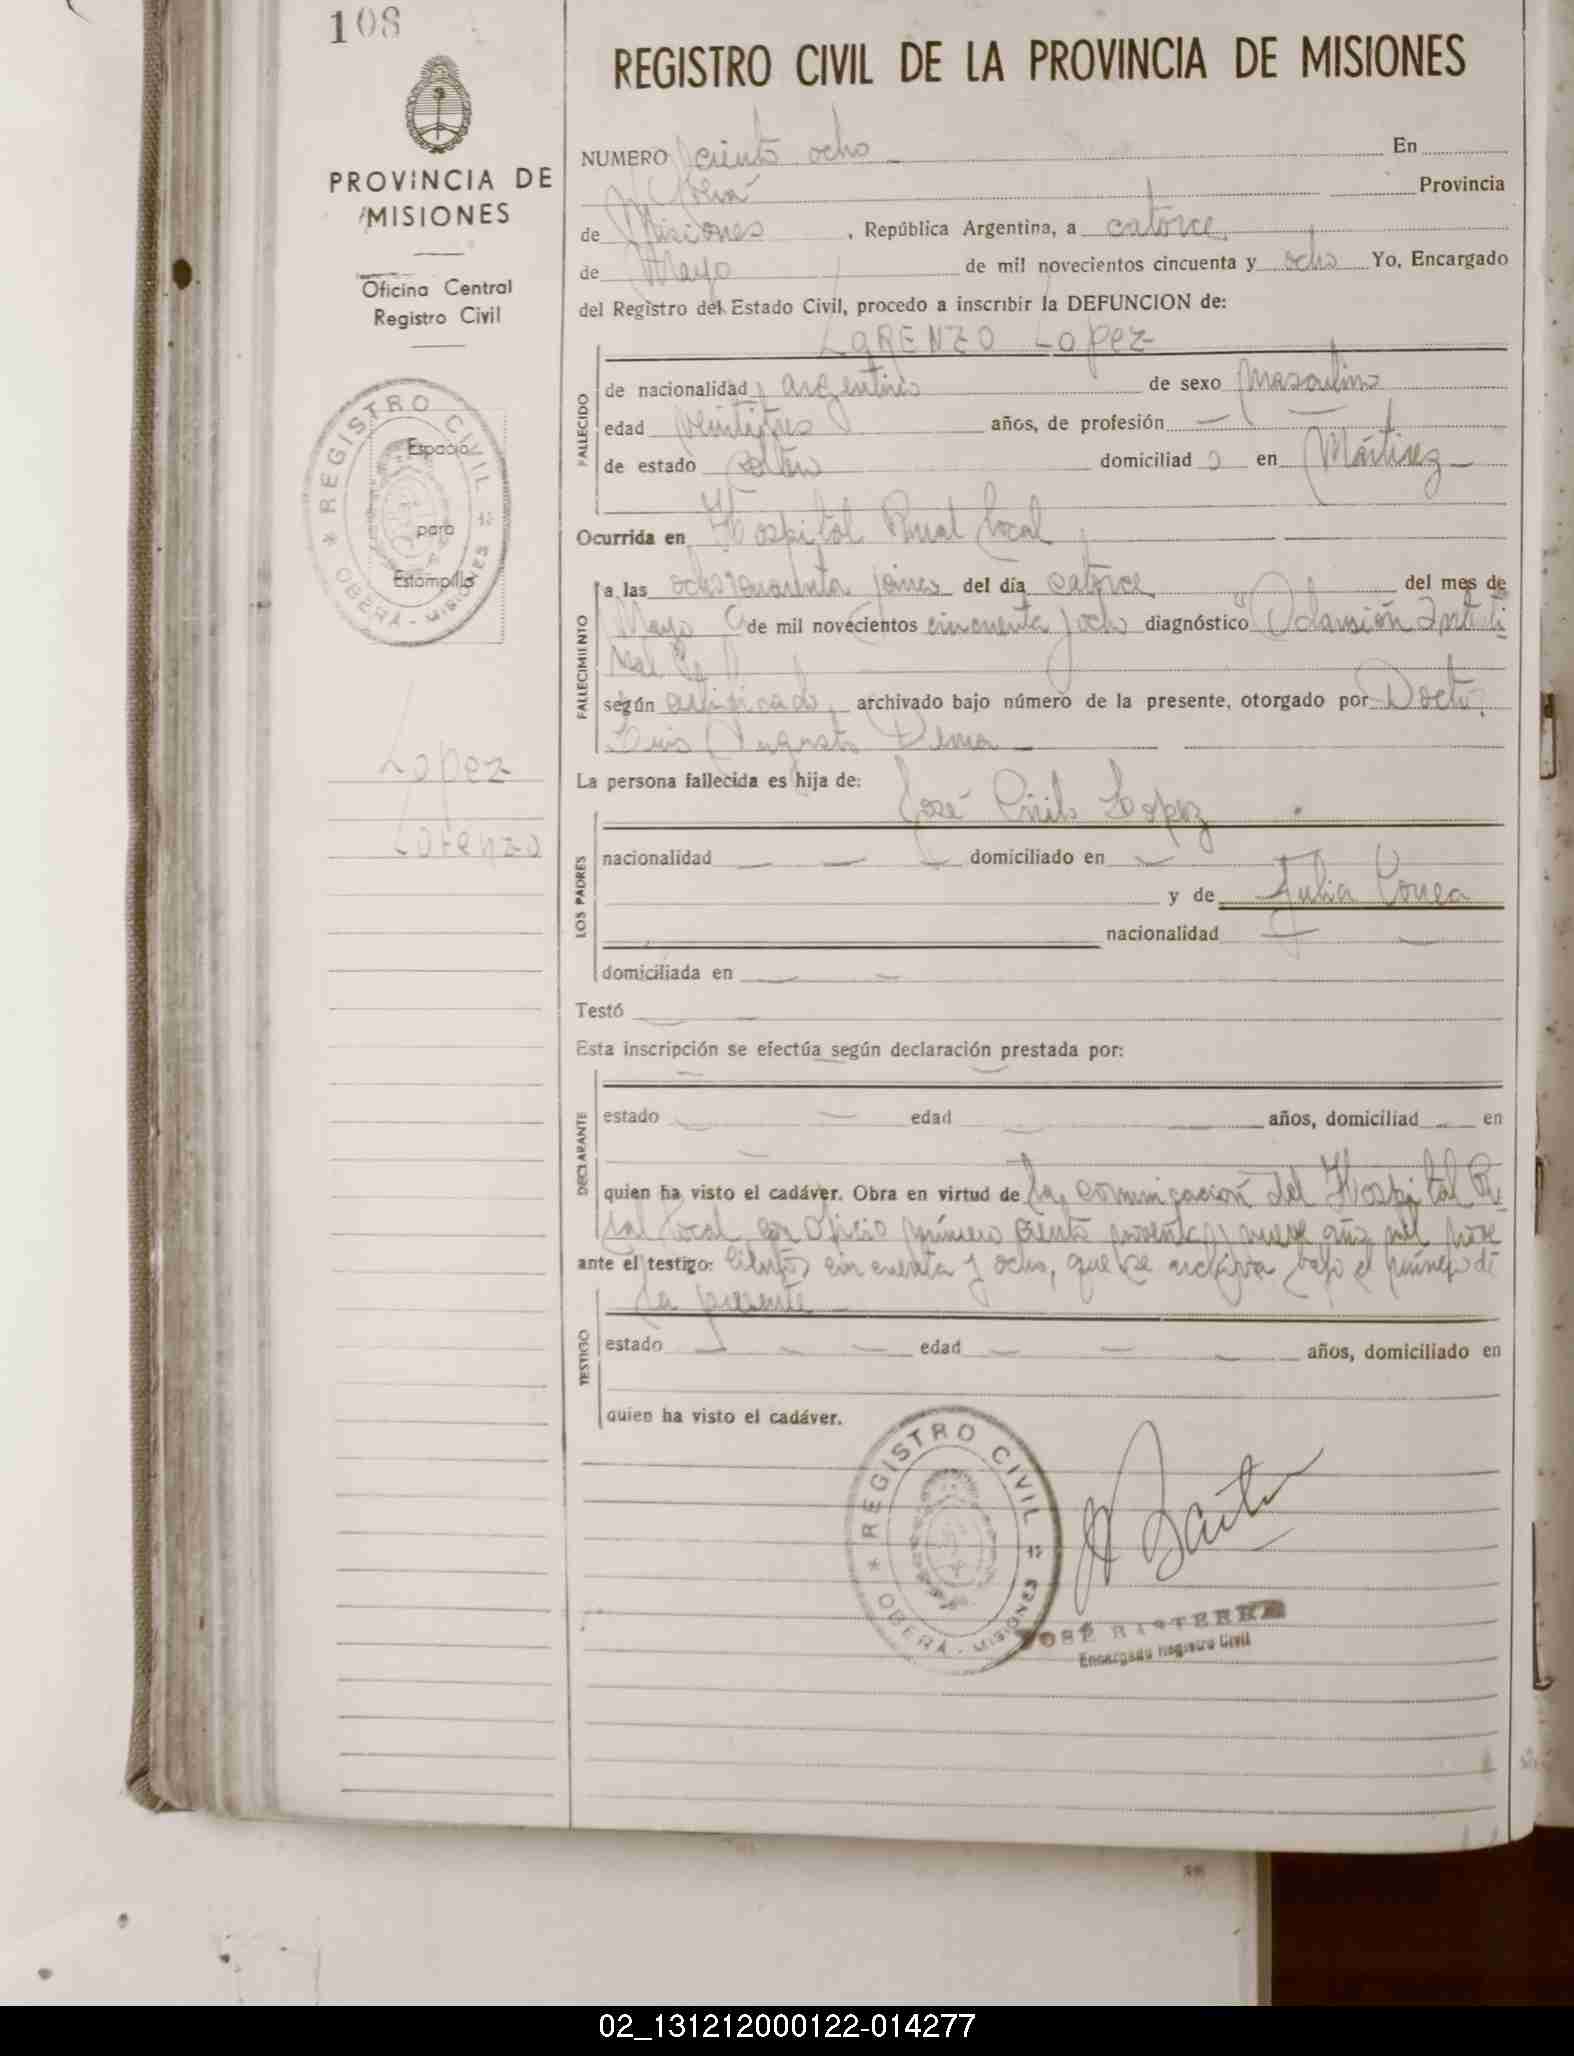 108
PROVINCIA DE
MISIONES
Oficina Central
Registro Civil
REGISTRO CIVIL OBERÁ - MISIONES
Espacio
para
Estampilla
Lopez
Lorenzo
REGISTRO CIVIL DE LA PROVINCIA DE MISIONES
NUMERO ciento ocho En
Oberá Provincia
de Misiones, República Argentina, a catorce
de Mayo de mil novecientos cincuenta y ocho Yo, Encargado
del Registro del Estado Civil, procedo a inscribir la DEFUNCION de:
LORENZO Lopez
FALLECIDO
de nacionalidad argentino de sexo Masculino
edad veintitres años, de profesión —
de estado soltero domiciliad o en Mártirez
Ocurrida en Hospital Rural Local
FALLECIMIENTO
a las ocho cuarenta y cinco del día catorce del mes de
Mayo de mil novecientos cincuenta y ocho diagnóstico
según certificado archivado bajo número de la presente, otorgado por Doctor
Luis Augusto
La persona fallecida es hija de:
LOS PADRES
José Lopez
nacionalidad — — domiciliado en —
y de Julia Correa
nacionalidad — —
domiciliada en — —
Testó — —
Esta inscripción se efectúa según declaración prestada por:
DECLARANTE
estado — — edad — — años, domiciliad — en
quien ha visto el cadáver. Obra en virtud de la comunicación del Hospital Ru-
ral Local con Oficio número ciento noventa y nueve año mil nove
ante el testigo: cientos cincuenta y ocho, que se archiva bajo el número de
la presente —
TESTIGO
estado — — — edad — — — años, domiciliado en
quien ha visto el cadáver.
REGISTRO CIVIL OBERÁ - MISIONES
JOSÉ BASTERRA
Encargado Registro Civil
02_131212000122-014277